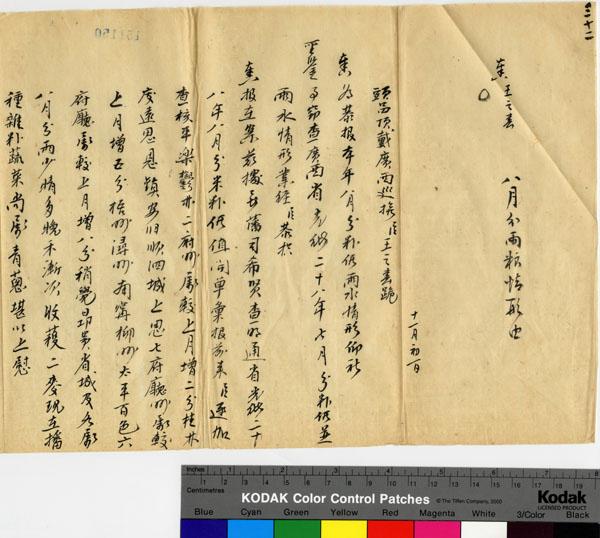 奏 王之春 八月分雨粮情形由
十一月初一日
頭品頂戴廣西巡撫臣王之春跪
奏為恭報本年八月分粮價雨水情形仰祈
聖鑒事竊查廣西省光緒二十八年七月分粮價並
雨水情形業經臣恭摺
奏報在案茲據藩司希賢查明通省光緒二十
八年八月分米粮價值開單彙報前來臣逐加
查核平樂鬱林二府州屬較上月增二分桂林
慶遠思恩鎮安歸順泗城上思七府廳州屬較
上月增五分梧州潯州南寧柳州太平百色六
府廳屬較上月增八分稍覺昂貴省城及各屬
八月分雨少晴多晚禾漸次收穫二麥現在播
種雜粮蔬菜尚屬青蔥堪以上慰
151180
Inches
Centimetres
KODAK Color Control Patches
© The Tiffen Company, 2000
Kodak
LICENSED PRODUCT
Blue Cyan Green Yellow Red Magenta White 3/Color Black